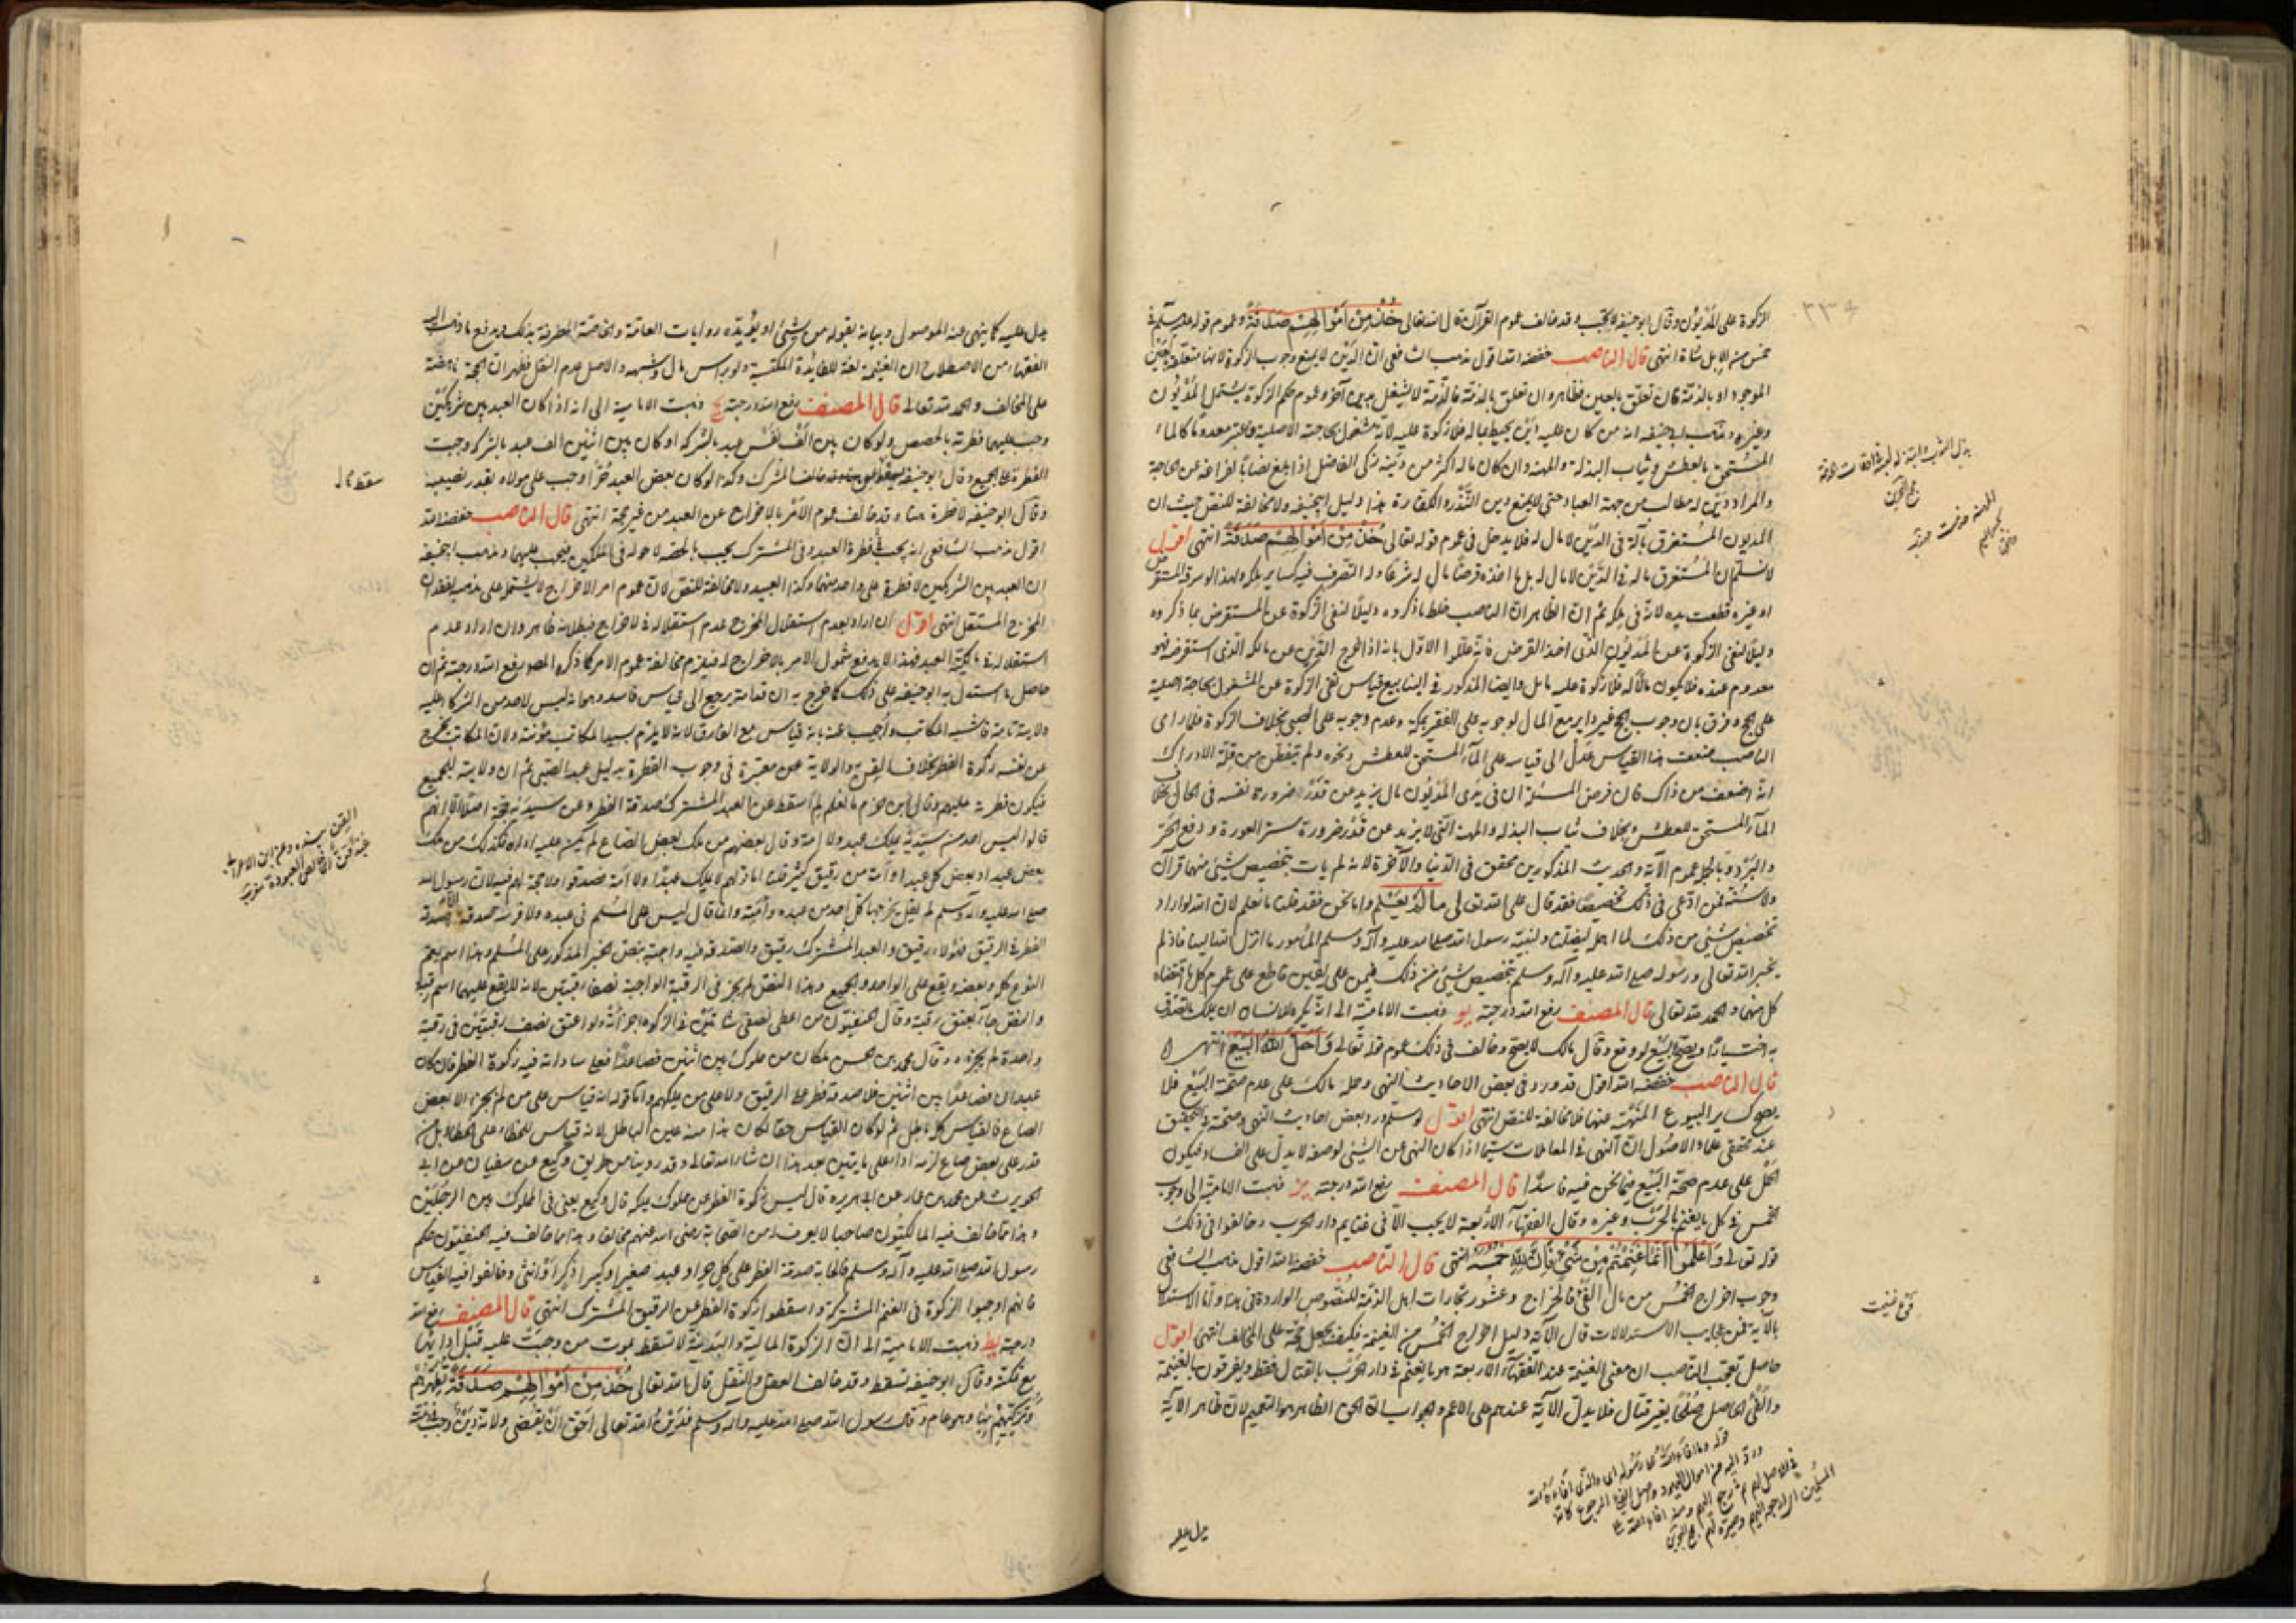 الزكوة على المديون وقال ابو حنيفة لا تجب وقد خالف عموم القرآن قال الله تعالى خُذْ مِنْ أَمْوَالِهِمْ صَدَقَةً وعموم قوله عليه السلام في
خمس من الابل شاة انتهى قال الناصب خفضه الله اقول مذهب الشافعي ان الدَّيْن لا يمنع وجوب الزكوة لانها متعلقة بعين
الموجود او بالذمة فان تعلق بالعين فظاهر وان تعلق بالذمة فالذمة لا يشغل بدين آخر وعموم حكم الزكوة يشتمل المديون
وغيره ومذهب ابي حنيفة انه من كان عليه دين يحيط بماله فلا زكوة عليه لانه مشغول بحاجته الاصلية فاعتبر معدوما كالماء
المستحق بالعطش وثياب البذلة والمهنة وان كان ماله اكثر من دينه زكى الفاضل اذا بلغ نصابا لفراغه عن الحاجة
والمراد دين له مطالب من جهة العباد حتى لا يمنع دين النذر والكفارة هذا دليل ابي حنيفة ولا مخالفة للنص حيث ان
المديون المستغرق ماله في الدين لا مال له فلا يدخل في عموم قوله تعالى خُذْ مِنْ أَمْوَالِهِمْ صَدَقَةً انتهى اقول
لا نسلم ان المستغرق ماله في الدين لا مال له بل ما اخذه قرضا مال له شرعا وله التصرف فيه كساير ملكه ولهذا لو سرقه المقرض
او غيره قطعت يده لانه في ملكه ثم ان الظاهر ان الناصب خلط ما ذكروه دليلا لنفي الزكوة عن المستقرض بما ذكروه
دليلا لنفي الزكوة عن المديون الذي اخذ القرض فانه عللوا الاول بانه اذا خرج الدين عن مالكه الذي استقرضه فهو
معدوم عنده فلا يكون مالا له فلا زكوة عليه تأمل وايضا المذكور في الينابيع قياس نفي الزكوة عن المشغول بحاجة اصلية
على الحج وفرق بان وجوب الحج غير داير مع المال لوجوبه على الفقير بمكة وعدم وجوبه على الصبي بخلاف الزكوة فلما رأى
الناصب ضعف هذا القياس عدل الى قياسه على الماء المستحق للعطش ونحوه ولم يتفطن من قلة الادراك
انه اضعف من ذاك فان فرض المسئلة ان في يدي المديون مال يزيد عن قدر ضرورة نفسه في الحال بخلاف
الماء المستحق للعطش وبخلاف ثياب البذلة والمهنة التي لا يزيد عن قدر ضرورة ستر العورة ودفع الحر
والبرد وبالجملة عموم الآية والحديث المذكورين محقق في الدنيا والآخرة لانه لم يأت بتخصيص شيئ منهما قرآن
ولا سنة فمن ادعى في ذلك تخصيصا فقد قال على الله تعالى ما لم يعلم واما نحن فقد قلنا ما نعلم لان الله لو اراد
تخصيص شيئ من ذلك لما اهمل ليضلنا ولبينه رسول الله صلى الله عليه وآله وسلم المأمور بما انزل الينا فاذ لم
يخبر الله تعالى ورسوله صلى الله عليه وآله وسلم بتخصيص شيئ من ذلك فنحن على يقين قاطع على عموم كل ما اقتضاه
كل منهما والحمد لله تعالى قال المصنف رفع الله درجته يو ذهبت الامامية الى انه يكره للانسان ان يملك ما تصدق
به اختيارا ويصح البيع لو وقع وقال مالك لا يصح وخالف في ذلك عموم قوله تعالى وَأَحَلَّ اللهُ الْبَيْعَ انتهى
قال الناصب خفضه الله اقول قد ورد في بعض الاحاديث النهي وحمله مالك على عدم صحة البيع فلا
يصح كساير البيوع المنهية عنها فلا مخالفة للنص انتهى اقول لو سلم ورود بعض احاديث النهي وصحته فالتحقيق
عند محققي علماء الاصول ان النهي في المعاملات سيما اذا كان النهي عن الشيئ لوصفه لا يدل على الفساد فيكون
الحمل على عدم صحة البيع فيما نحن فيه فاسدا قال المصنف رفع الله درجته يز ذهبت الامامية الى وجوب
الخمس في كل ما يغنم بالحرب وغيره وقال الفقهاء الاربعة لا يجب الا في غنايم دار الحرب وخالفوا في ذلك
قوله تعالى وَاعْلَمُوا أَنَّمَا غَنِمْتُمْ مِنْ شَيْءٍ فَأَنَّ لِلَّهِ خُمُسَهُ انتهى قال الناصب خفضه الله اقول مذهب الشافعي
وجوب اخراج الخمس من مال الفيئ كالخراج وعشور تجارات اهل الذمة للنصوص الواردة في هذا واما الاستدلال
بالآية فمن عجايب الاستدلالات فان الآية دليل اخراج الخمس من الغنيمة فكيف يجعل حجة على المخالف انتهى اقول
حاصل تعجب الناصب ان معنى الغنيمة عند الفقهاء الاربعة هو ما يغنم في دار الحرب بالقتال فقط ويفرقون بين الغنيمة
والفيئ الحاصل صلحا بغير قتال فلا يدل الآية عندهم على الاعم والجواب ان الحق الظاهر هو التعميم لان ظاهر الآية
يدل عليه
يدل عليه كما ينهي عنه الموصول وبيانه بقوله من شيئ او يؤيده روايات العامة والخاصة المصرفة بذلك ويدفع ما ذهب اليه
الفقهاء من الاصطلاح ان الغنيمة لغة للفائدة المكتسبة ولو براس مال وشبهه والاصل عدم النقل فظهر ان الحجة ناهضة
على المخالف والحمد لله تعالى قال المصنف رفع الله درجته يح ذهبت الامامية الى انه اذا كان العبد بين شريكين
وجب عليهما فطرته بالحصص ولو كان بين الف نفس عبد بالشركة او كان بين اثنين الف عبد بالشركة وجبت
الفطرة على الجميع وقال ابو حنيفة خالف المشترك وكذا لو كان بعض العبد حرا وجب على مولاه بقدر نصيبه
سقط
وقال ابو حنيفة لا فطرة هنا وقد خالف عموم الامر بالاخراج عن العبد من غير حجة انتهى قال الناصب خفضه الله
اقول مذهب الشافعي انه يجب فطرة العبد وفي المشترك يجب بالحصة لدخوله في الملكين فيجب عليهما ومذهب ابي حنيفة
ان العبد بين الشريكين لا فطرة على واحد منهما وكذا العبيد ولا مخالفة للنص لان عموم امر الاخراج لا يشتمل على مذهبه لفقدان
المخرج المستقل انتهى اقول ان اراد بعدم استقلال المخرج عدم استقلاله في الاخراج فبطلانه ظاهر وان اراد عدم
استقلاله في مالكية العبد فهذا لا يدفع شمول الامر بالاخراج له فيلزم مخالفة عموم الامر كما ذكره المصنف رفع الله درجته ثم ان
حاصل ما استدل به ابو حنيفة على ذلك كما خرج به ابن قدامة يرجع الى قياس فاسد وهو انه ليس لاحد من الشركاء عليه
ولاية تامة فاشبه المكاتب واجيب عنه بانه قياس مع الفارق لانه لا يلزم سيد المكاتب مؤنته ولان المكاتب يخرج
عن نفسه زكوة الفطر بخلاف القن والولاية غير معتبرة في وجوب الفطرة بدليل عبد الصبي ثم ان ولايته للجميع
فيكون فطرته عليهم وقال ابن حزم ما نعلم لمن اسقط عن العبد المشترك صدقة الفطر وعن سيديه حجة اصلا الا انهم
قالوا ليس احد من سيديه يملك عبدا ولا امة وقال بعضهم من ملك بعض الصاع لم يكن عليه اداؤه فكذلك من ملك
بعض عبد او بعض كل عبد او امة من رقيق كثير قلنا اما قولهم لا يملك عبدا ولا امة فصدقوا ولا حجة لهم فيه لان رسول الله
صلى الله عليه وآله وسلم لم يقل يخرجها كل احد من عبده وامته وانما قال ليس على المسلم في عبده ولا فرسه صدقة الا صدقة
الفطر في الرقيق فهؤلاء رقيق والعبد المشترك رقيق والصدقة فيه واجبة بنص الخبر المذكور على المسلم وهذا اسم يعم
النوع كله وبعضه ويقع على الواحد والجميع وهذا النقص لم يجز في الرقبة الواجبة نصفا رقبتين لانه لا يقع عليهما اسم رقبة
والنص جاء بعتق رقبة وقال الحنفيون من اعطى نصفي شاتين في الزكوة اجزأته ولو اعتق نصف رقبتين في رقبة
واحدة لم يجزه وقال محمد بن الحسن من كان من مملوك بين اثنين فصاعدا فعلى ساداته فيه زكوة الفطر فان كان
عبدان فصاعدا بين اثنين فلا صدقة فطر على الرقيق ولا على من يملكهم واما قوله انه قياس على من لم يجد الا بعض
الصاع فالقياس كله باطل ثم لو كان القياس حقا لكان هذا منه عين الباطل لانه قياس للخطاء على الخطاء بل من
قدر على بعض صاع لزمه اداءه على ما يتبين بعد هذا ان شاء الله تعالى وقد روينا من طريق وكيع عن سفيان عن ابي
الحويرث عن محمد بن عمار عن ابي هريرة قال ليس زكوة الفطر عن مملوك يملكه قال وكيع يعني في المملوك بين الرجلين
وهذا مما خالف فيه المالكيون صاحبا لا يعرف له من الصحابة رضي الله عنهم مخالفا وهذا مما خالف فيه الحنفيون حكم
رسول الله صلى الله عليه وآله وسلم في ايجابه صدقة الفطر على كل حر او عبد صغير او كبير ذكر او انثى وخالفوا فيه القياس
فانهم اوجبوا الزكوة في الغنم المشتركة واسقطوا زكوة الفطر عن الرقيق المشترك انتهى قال المصنف رفع الله
درجته يط ذهبت الامامية الى ان الزكوة المالية والبدنية لا تسقط بموت من وجبت عليه قبل ادائها
مع تمكنه وقال ابو حنيفة تسقط وقد خالف العقل والنقل قال الله تعالى خُذْ مِنْ أَمْوَالِهِمْ صَدَقَةً تُطَهِّرُهُمْ
وَتُزَكِّيهِمْ بِهَا وهو عام وقال رسول الله صلى الله عليه وآله وسلم فدين الله تعالى احق ان يقضى ولانه دين وجب في ذمته